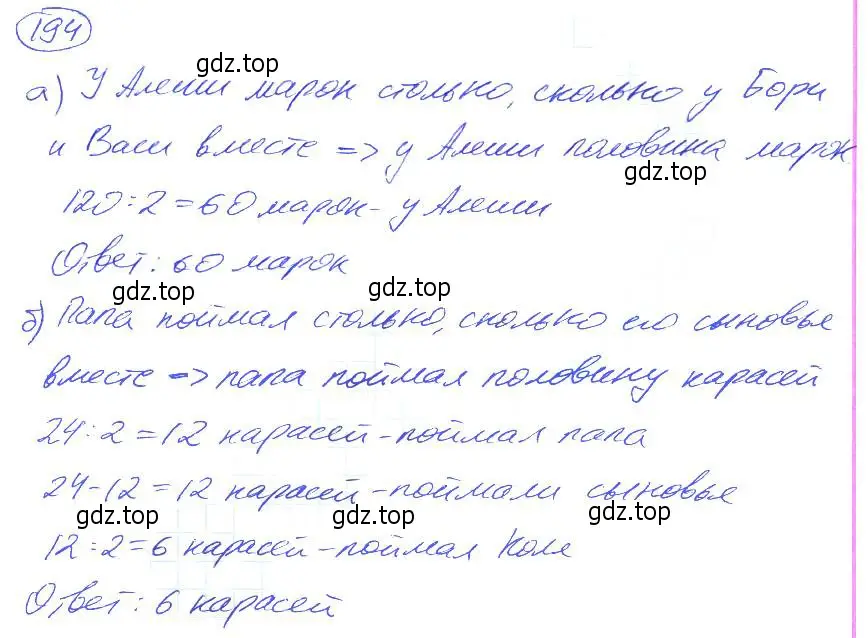 194
gdz.top
а) У Алеши марок столько, сколько у Бори
и Васи вместе => у Алеши половина марок
gdz.top
120:2=60 марок - у Алеши
Ответ: 60 марок
gdz.top gdz.top
б) Папа поймал столько, сколько его сыновья
вместе => папа поймал половину карасей
24:2=12 карасей - поймал папа
24-12=12 карасей - поймали сыновья
gdz.top gdz.top gdz.top
12:2=6 карасей - поймал Коля
Ответ: 6 карасей